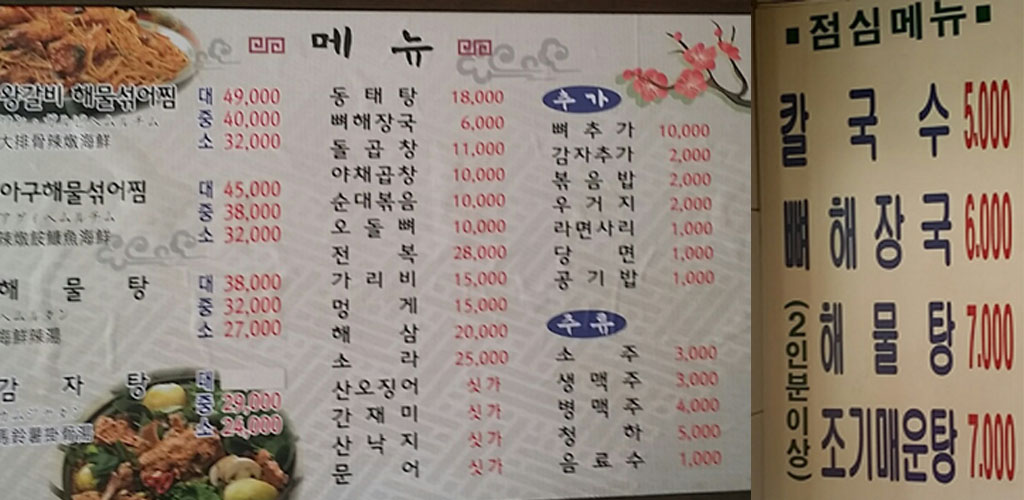 메 뉴
왕갈비 해물섞어찜 대 49,000
중 40,000
大排骨辣燉海鮮 소 32,000
아구해물섞어찜 대 45,000
アグィヘムルチム 중 38,000
辣燉鮟鱇魚海鮮 소 32,000
해 물 탕 대 38,000
ヘムルタン 중 32,000
海鮮辣湯 소 27,000
감 자 탕 대
중 29,000
소 24,000
동태탕 18,000
뼈해장국 6,000
돌곱창 11,000
야채곱창 10,000
순대볶음 10,000
오돌뼈 10,000
전 복 28,000
가리비 15,000
멍 게 15,000
해 삼 20,000
소 라 25,000
산오징어 싯가
간재미 싯가
산낙지 싯가
문 어 싯가
추가
뼈추가 10,000
감자추가 2,000
볶음밥 2,000
우거지 2,000
라면사리 1,000
당 면 1,000
공기밥 1,000
주류
소 주 3,000
생맥주 3,000
병맥주 4,000
청 하 5,000
음료수 1,000
점심메뉴
칼국수 5.000
뼈해장국 6.000
(2인분이상)
해물탕 7.000
조기매운탕 7.000